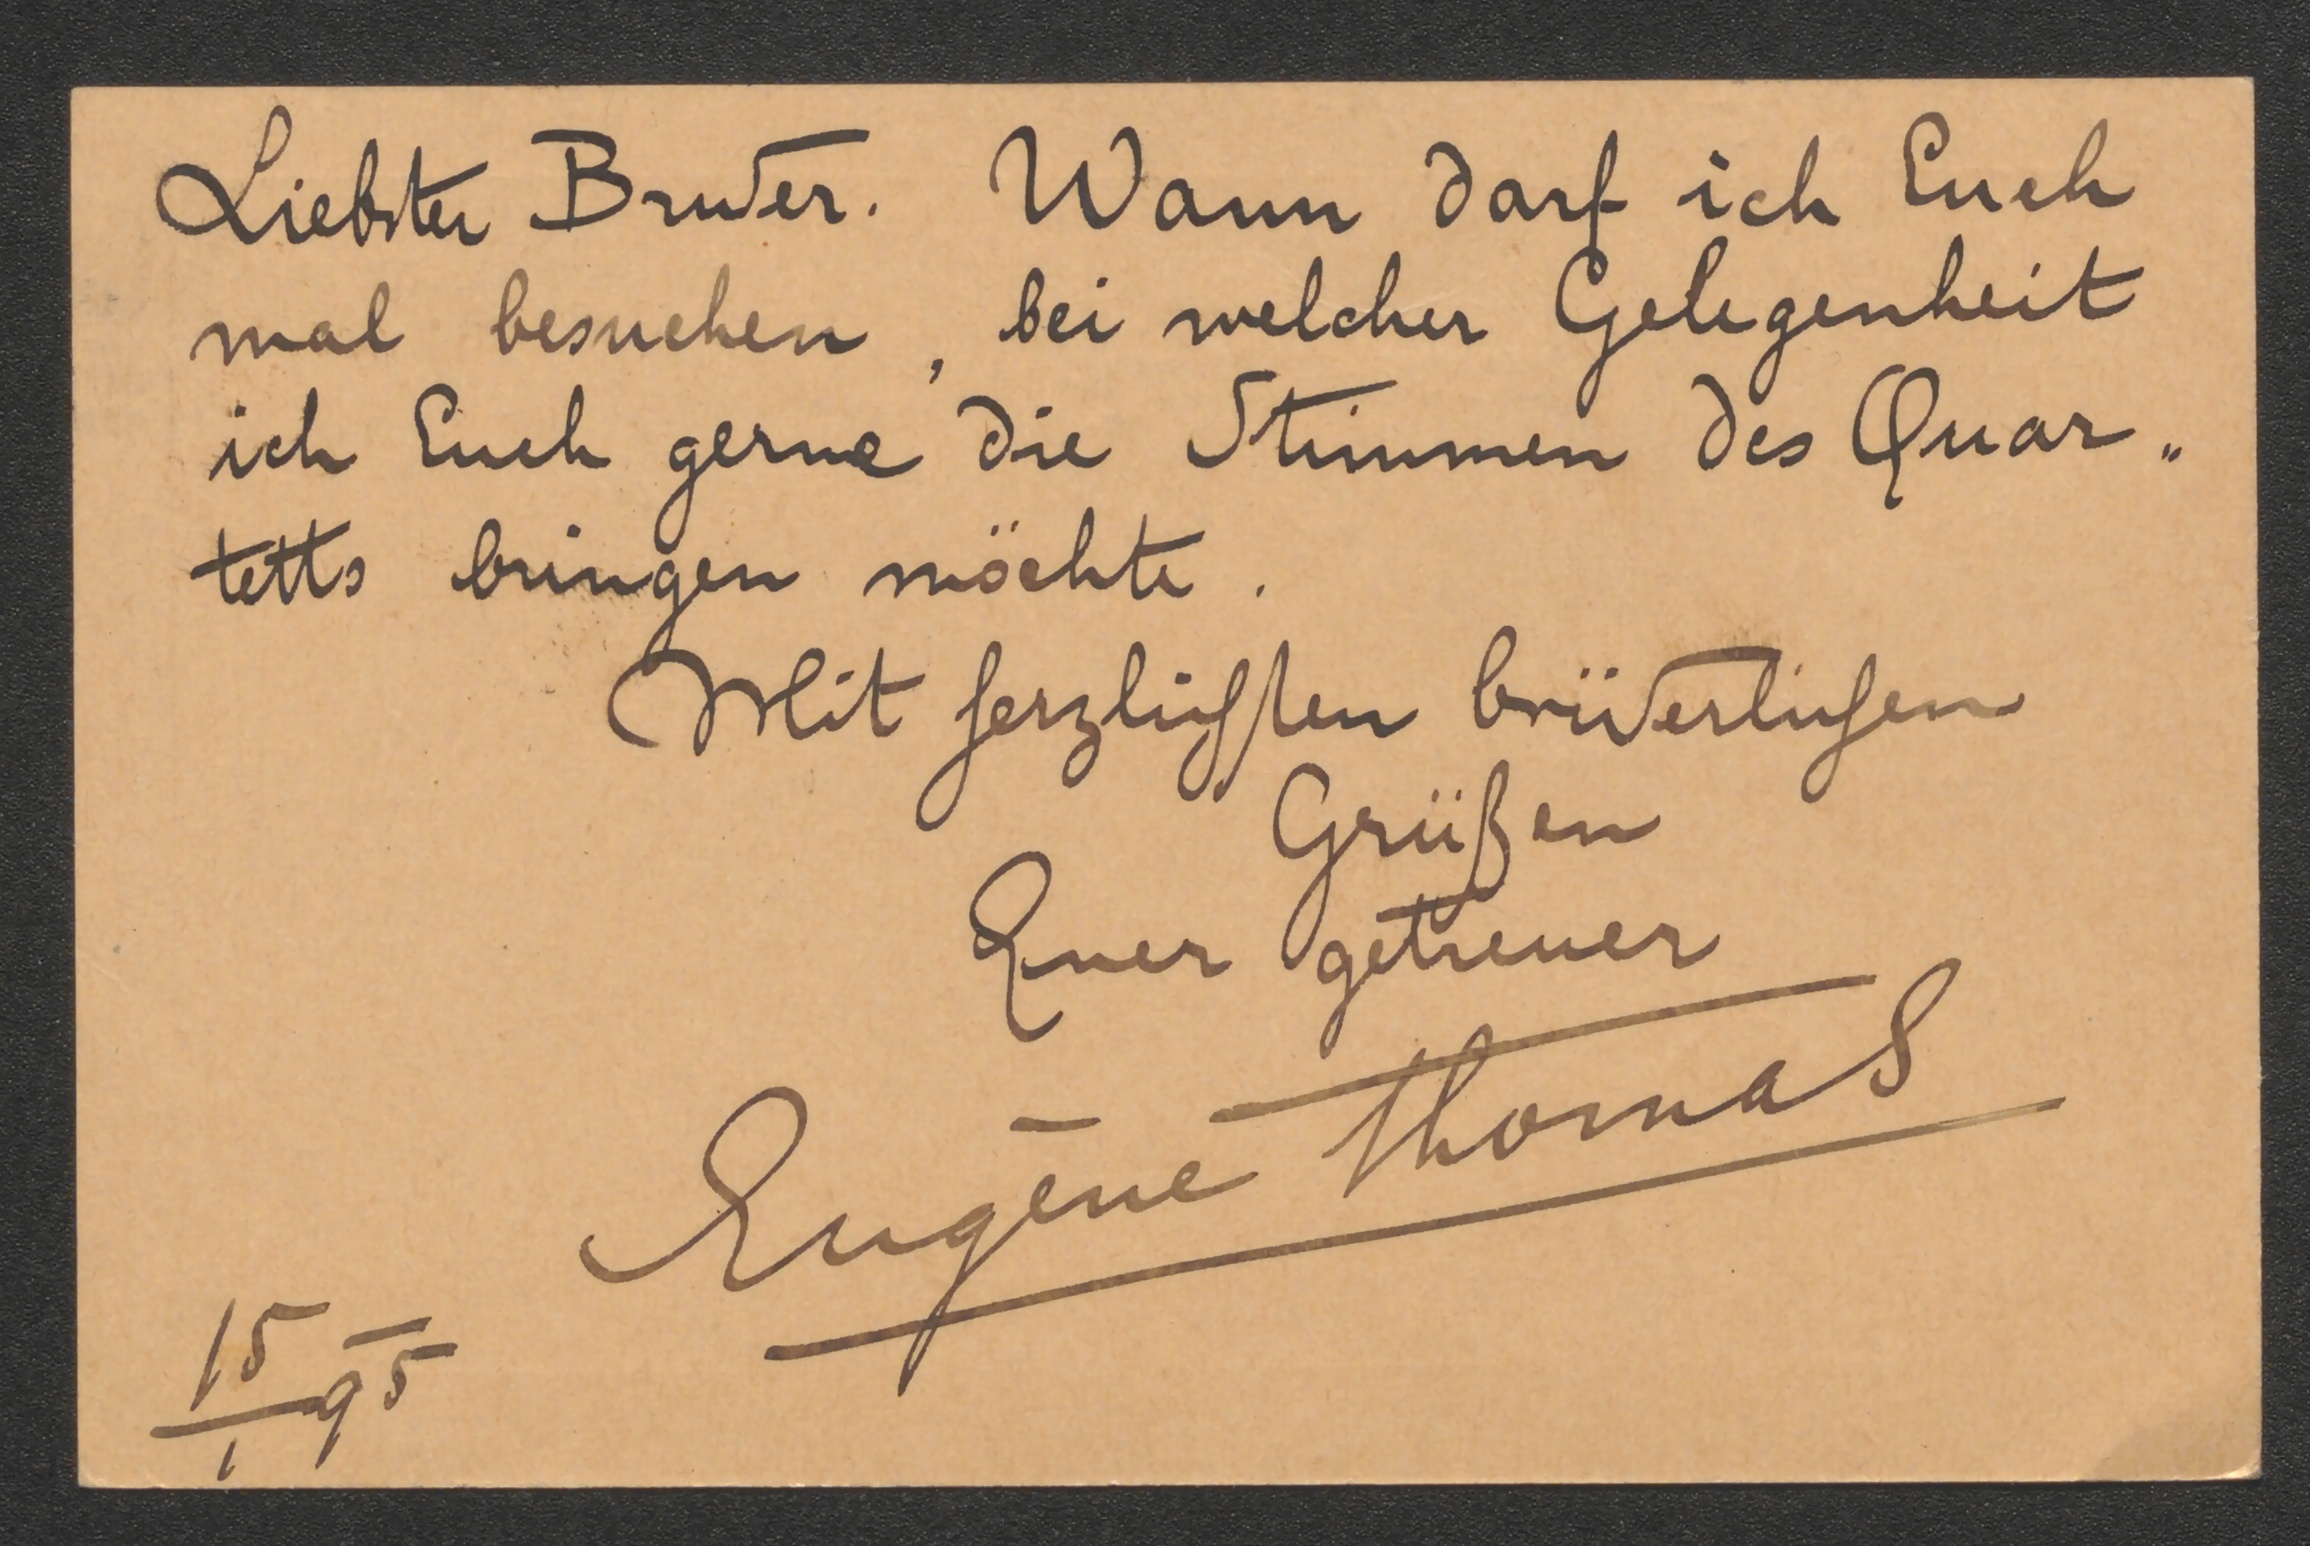 Liebster Bruder. Wann darf ich Euch
mal besuchen, bei welcher Gelegenheit
ich Euch gerne die Stimmen des Quar„
tetts bringen möchte.
Mit herzlichsten brüderlichen
Grüßen
Euer getreuer
Eugène Thomas
15/1 95